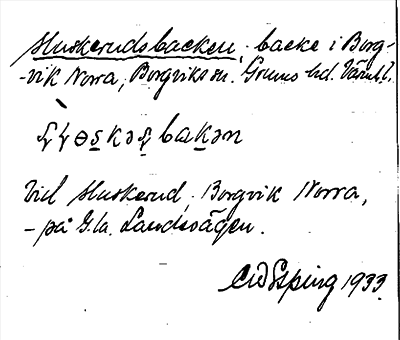 Huskerudsbacken, backe i Borg-
-vik Norra, Borgviks sn. Grums hd. Värml.
bakən
Vid Huskerud, Borgvik Norra,
- på G:la Landsvägen.
1933.